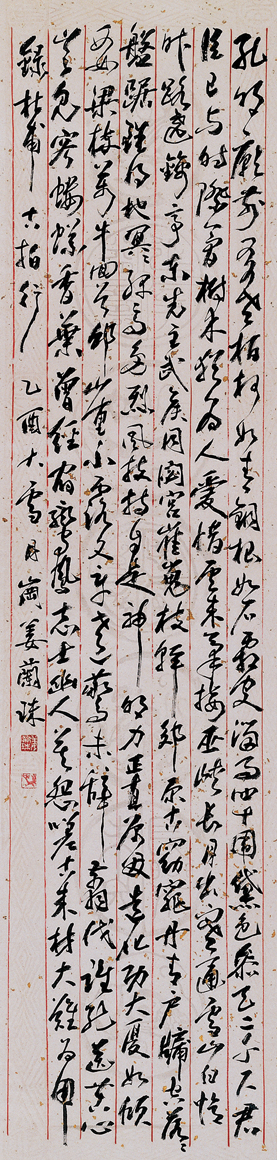 孔明廟前有老柏柯如青銅根如石霜皮溜雨四十圍黛色參天二千尺君
臣已與時際會樹木猶為人愛惜雲來氣接巫峽長月出寒通雪山白憶
昨路遶錦亭東先主武侯同閟宮崔嵬枝幹郊原古窈窕丹青戶牖空落々
盤踞雖得地冥冥孤高多烈風扶持自是神明力正直原因造化功大廈如傾
要梁棟萬牛回首邱山重不露文章世已驚未辭翦伐誰能送苦心
豈免容螻蟻香葉曾經宿鸞鳳志士幽人莫怨嗟古來材大難為用
錄杜甫古柏行 乙酉大雪 月嵐姜蘭珠